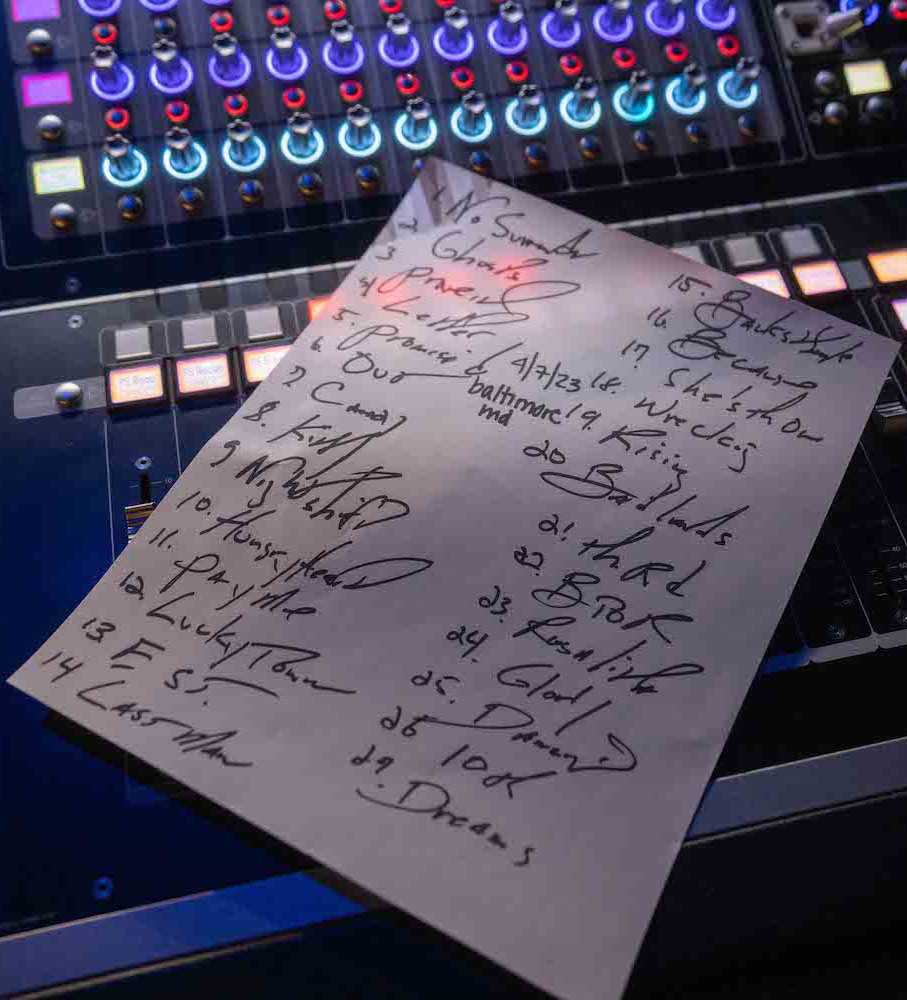 1. No Surrender
2. Ghosts
3 Prove it
4 Letter
5. Promised
6. Our
7 Candy
8. Kitty
9 Nightshift
10. Hungry Heart
11. Pay Me
12. Lucky Town
13 E ST.
14 Last Man
4/7/23
baltimore
md
15. Backstreets
16. Because
17. She's the One
18. Wrecking
19. Rising
20 Badlands
21. th Rd
22. BTOR
23. Rosalita
24. Glory
25. Dancing
26 10th
27. Dreams
PS Recvo
PS Recvo